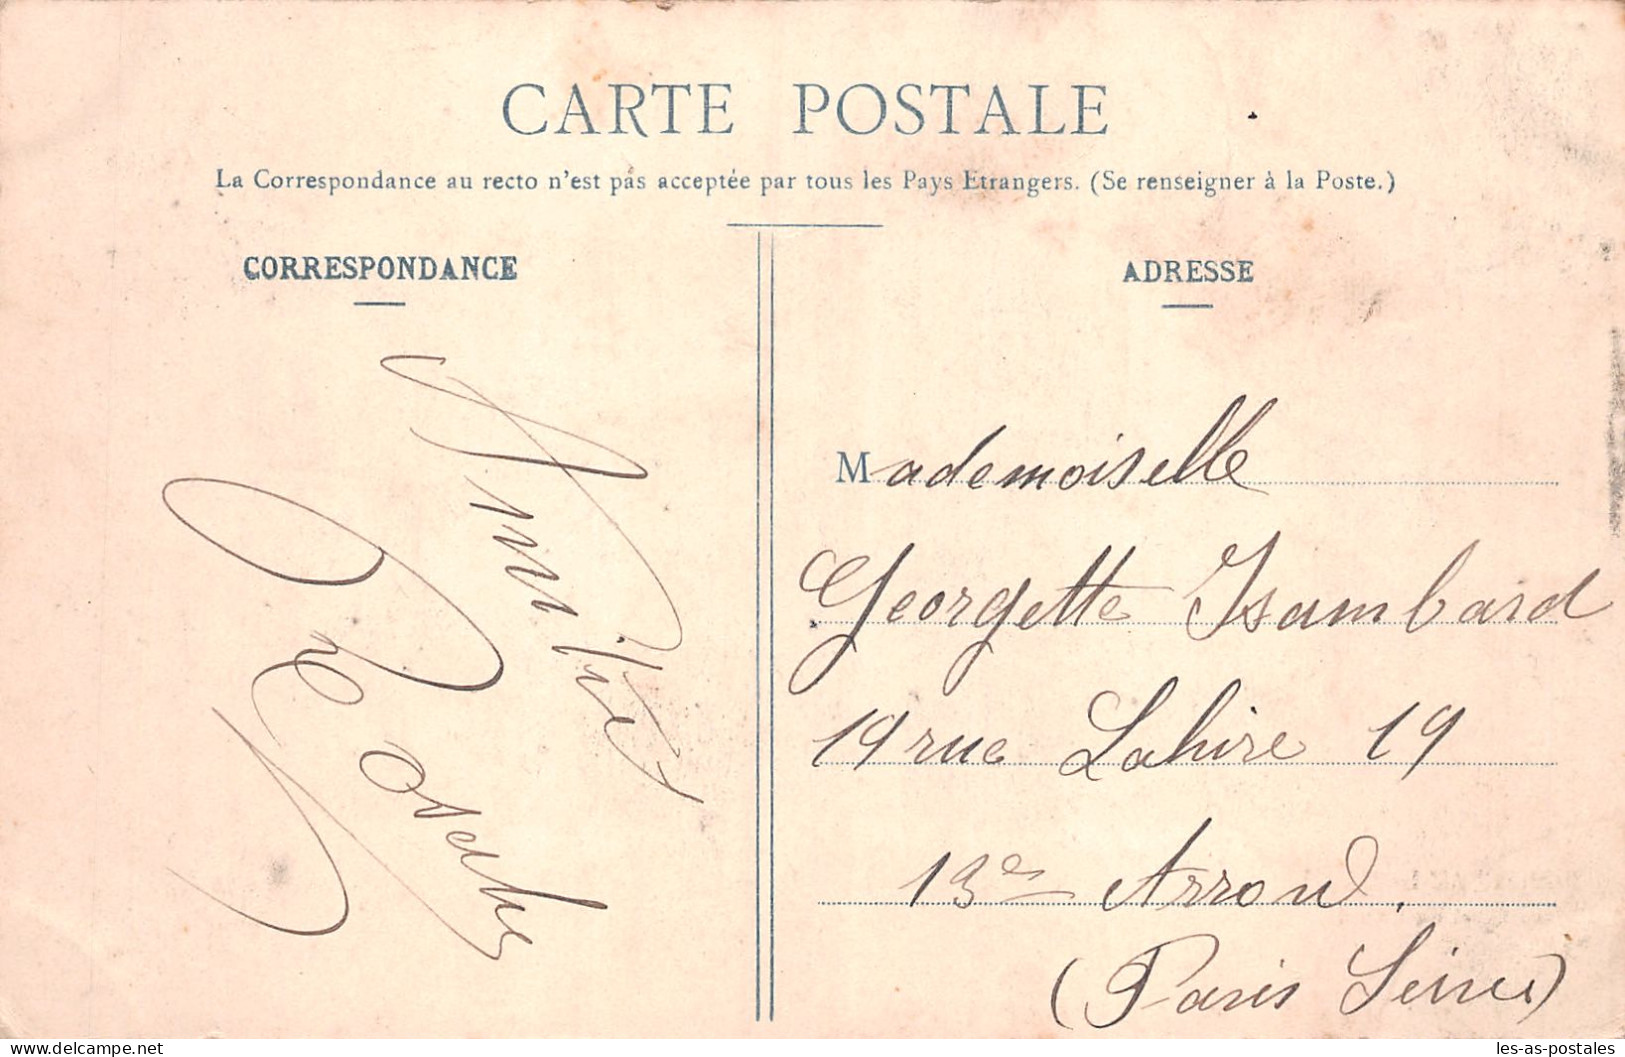 CARTE POSTALE
La Correspondance au recto n'est pas acceptée par tous les Pays Etrangers. (Se renseigner à la Poste.)
CORRESPONDANCE
Amitiés
ADRESSE
Mademoiselle
Georgette Isambard
19 rue Lahire 19
13e Arrond.
(Paris Seine)
delcampe.net
les-as-postales